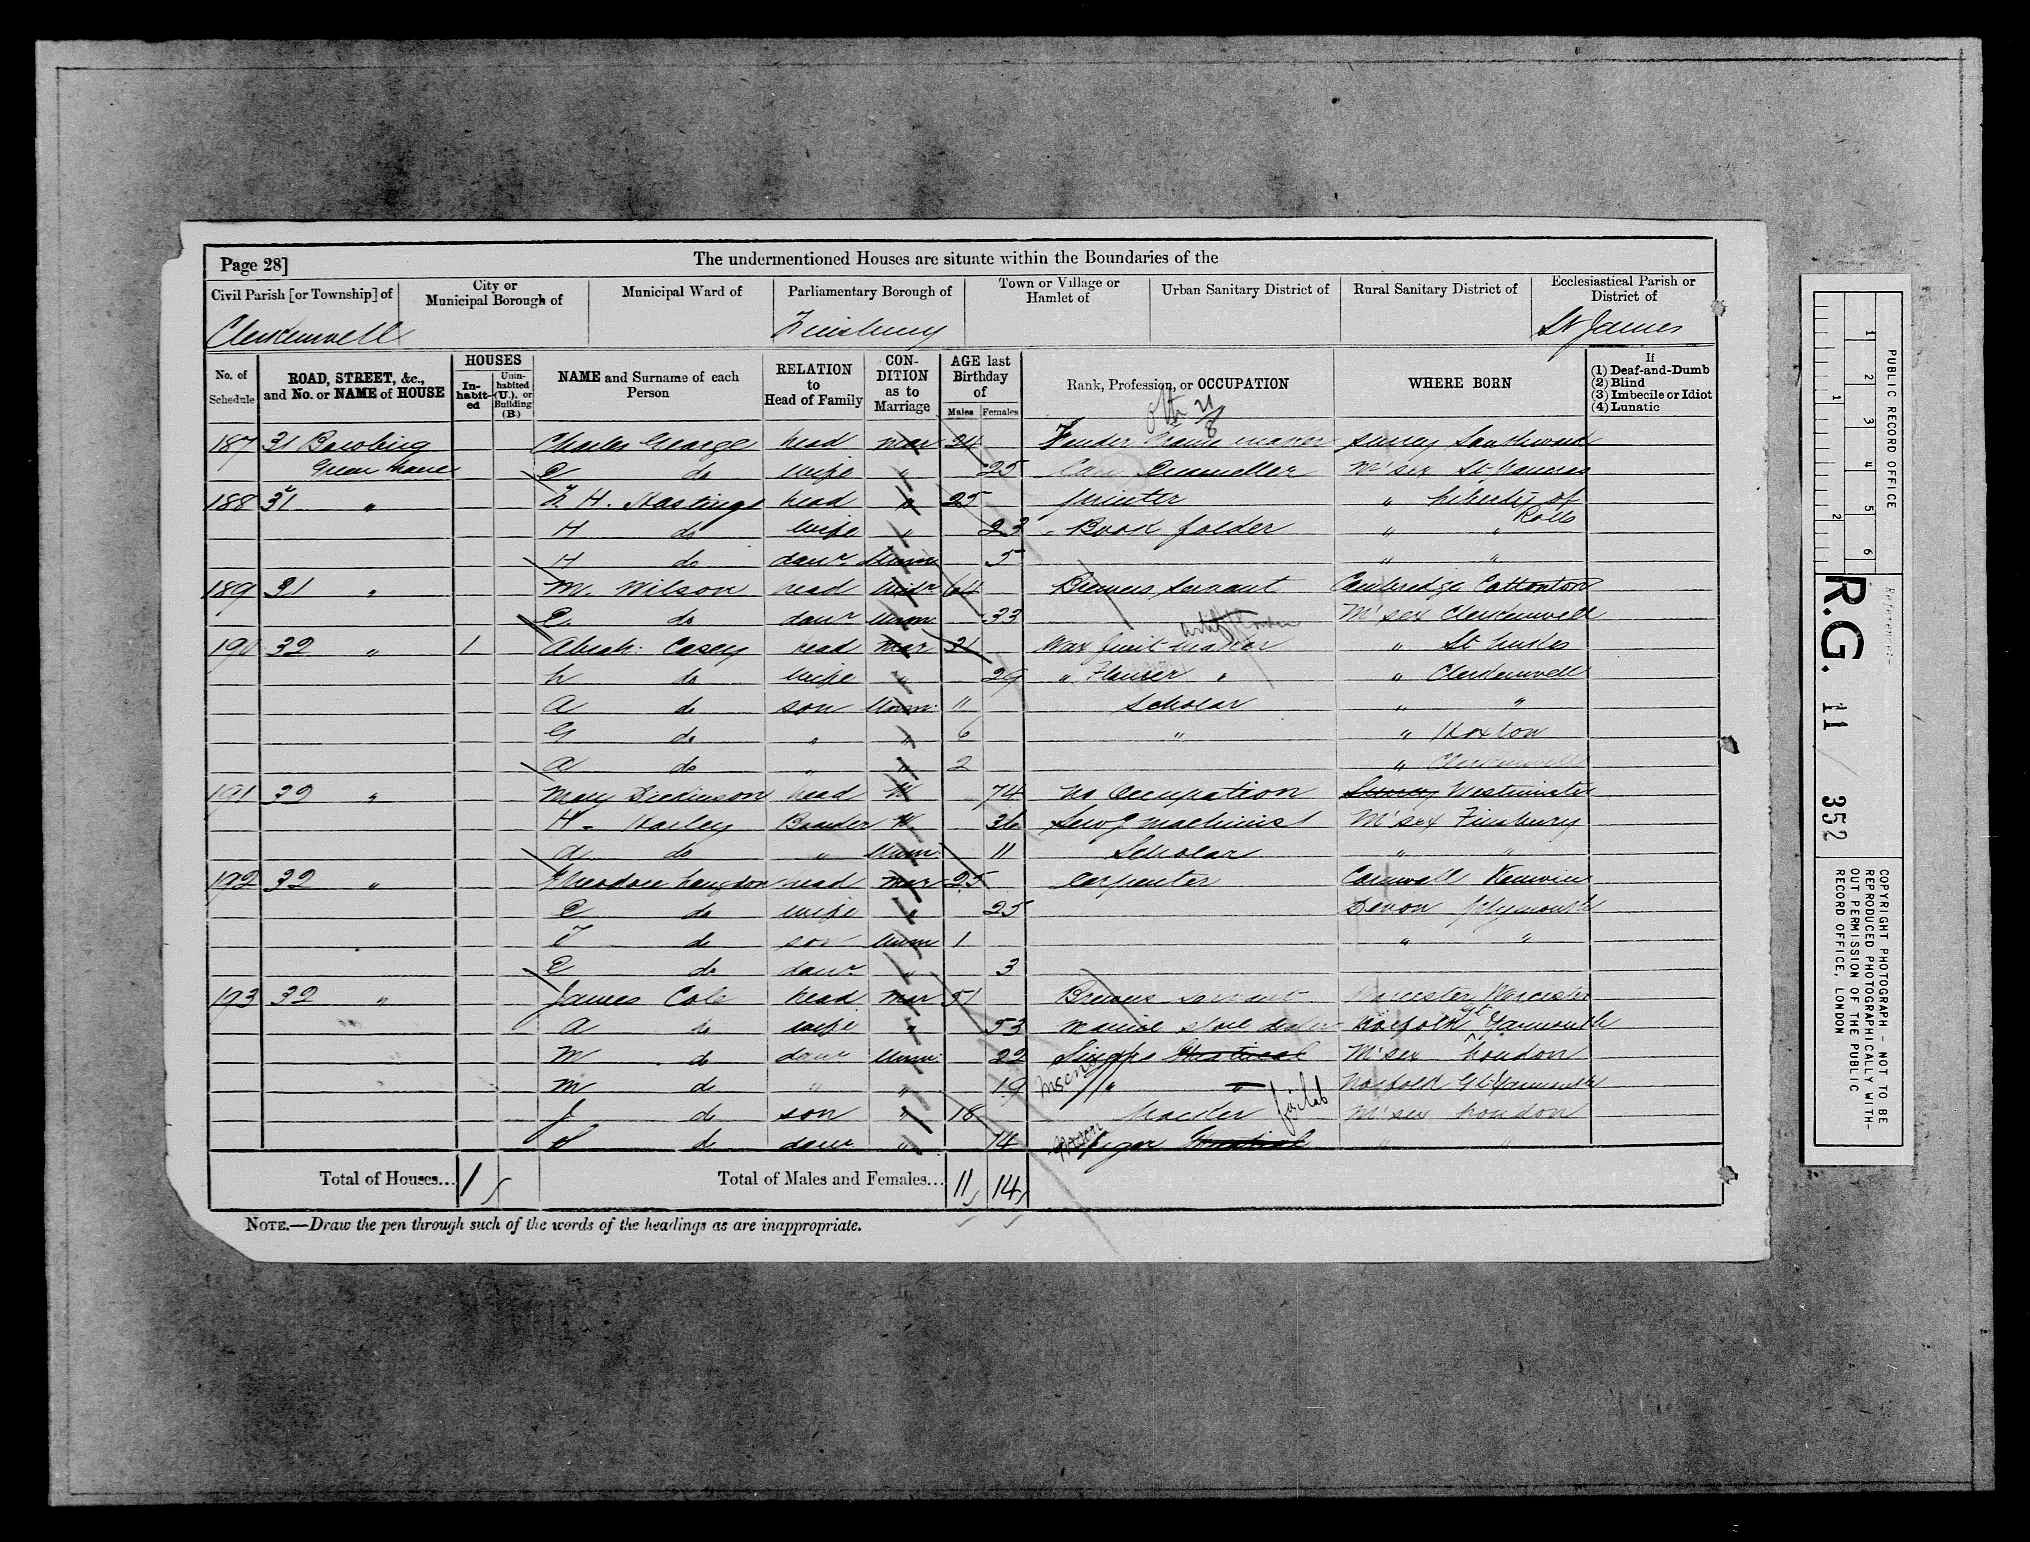 Page 28]
The undermentioned Houses are situate within the Boundaries of the
Civil Parish [or Township] of
City or Municipal Borough of
Municipal Ward of
Parliamentary Borough of
Town or Village or Hamlet of
Urban Sanitary District of
Rural Sanitary District of
Ecclesiastical Parish or District of
Clerkenwell Finsbury St James
No. of Schedule
ROAD, STREET, &c., and No. or NAME of HOUSE
HOUSES
In-habit-ed
Unin-habited (U.), or Building (B.)
NAME and Surname of each Person
RELATION to Head of Family
CON-DITION as to Marriage
AGE last Birthday of
Males Females
Rank, Profession, or OCCUPATION
WHERE BORN
If
(1) Deaf-and-Dumb
(2) Blind
(3) Imbecile or Idiot
(4) Lunatic
187 31 Bowling Charles George head mar 24 Surrey Southwark
Green Lane E do wife " 25 M'sex St Pancras
188 31 " H. Hastings head " 25 printer " Liberty of Rolls
H do wife " 23 Book folder " "
H do daur Unm 5 " "
189 31 " M. Wilson head Widr 64 Brewers servant Cambredge Cottonton
E. do daur Unm 33 M'sex Clerkenwell
190 32 " 1 Abrah: Casey head mar 31 Wax fruit maker " St Lukes
L do wife " 29 " Flower " " Clerkenwell
A do son Unm: 11 Scholar " "
G do " " 6 " " Hoxton
A do " " 2 " Clerkenwell
191 32 " Mary Dickinson head W 74 No Occupation Westminster
H. Harley Boarder W. 36 Sewg machinist M'sex Finsbury
A do " Unm: 11 Scholar " "
192 32 " Theodore Langdon head mar 25 Carpenter Cornwall Kenwin
E do wife " 25 Devon Plymouth
T do son Unm 1 " "
E do daur " 3
193 32 " James Cole head mar 51 Brewers servant Worcester Worcester
A do wife " 53 marine store dealer Norfolk Gt Yarmouth
M do daur Unm: 22 M'sex London
M do " " 19 " " Norfold Gt Yarmouth
J do son " 18 M'sex London
S do daur " 14 " "
Total of Houses... 1
Total of Males and Females... 11 14
NOTE.—Draw the pen through such of the words of the headings as are inappropriate.
PUBLIC RECORD OFFICE
1 2 3 4 5 6
1 2
Reference:-
R.G. 11 / 352
COPYRIGHT PHOTOGRAPH - NOT TO BE
REPRODUCED PHOTOGRAPHICALLY WITH-
OUT PERMISSION OF THE PUBLIC
RECORD OFFICE, LONDON